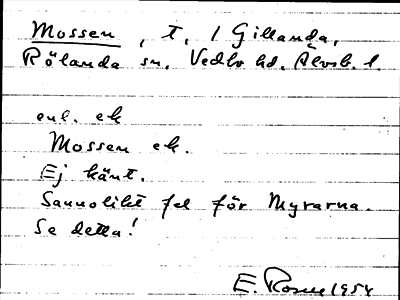 Mossen, t. / Gillanda,
Rölanda sn. Vedbo hd. Älvsb. l.
enl. ek
Mossen ek.
Ej känt.
Sannolikt fel för Myrarna.
Se detta!
E. Rosell 1954